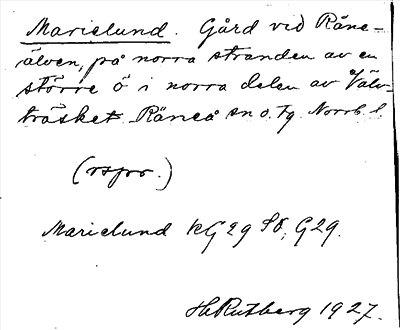 Marielund. Gård vid Råne-
älven, på norra stranden av en
större ö i norra delen av Väls-
träsket Råneå sn o. tg. Norrb. l.
(rspr.)
Marielund KG 29 SO, G29.
H Rutberg 1927.